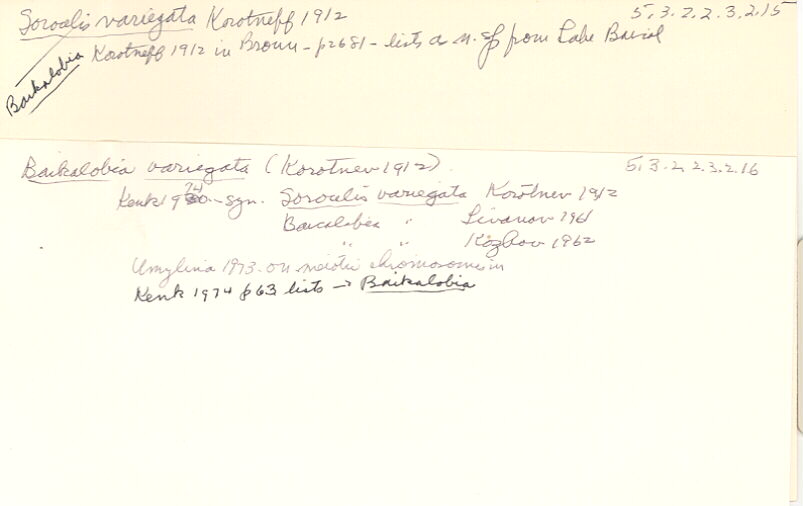 Sorocelis variegata Korotneff 1912 5.3.2.2.3.2.15
Baikalobia Korotneff 1912 in Brown - p2681 - lists a n. sp from Lake Baical
Baikalobia variegata (Korotnev 1912). 5.3.2.2.3.2.16
Kenk 1974 - syn. Sorocelis variegata Korotnev 1912
Baicalobia " Livanov 1961
" " Kozhov 1962
Umylina 1973 - on meiotic chromosomes in
Kenk 1974 p63 lists → Baikalobia